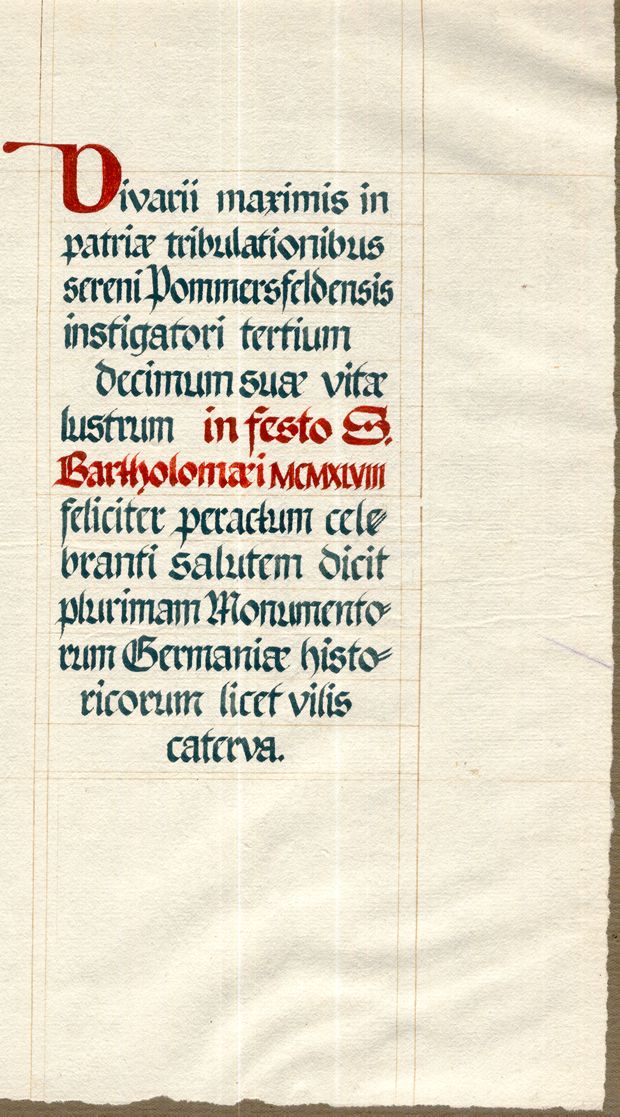 Divarii maximis in
patriæ tribulationibus
sereni Pommersfeldensis
instigatori tertium
decimum suæ vitæ
lustrum in festo S.
Bartholomæi MCMXLVIII
feliciter peractum cele=
branti salutem dicit
plurimam Monumento=
rum Germaniæ histo=
ricorum licet vilis
caterva.